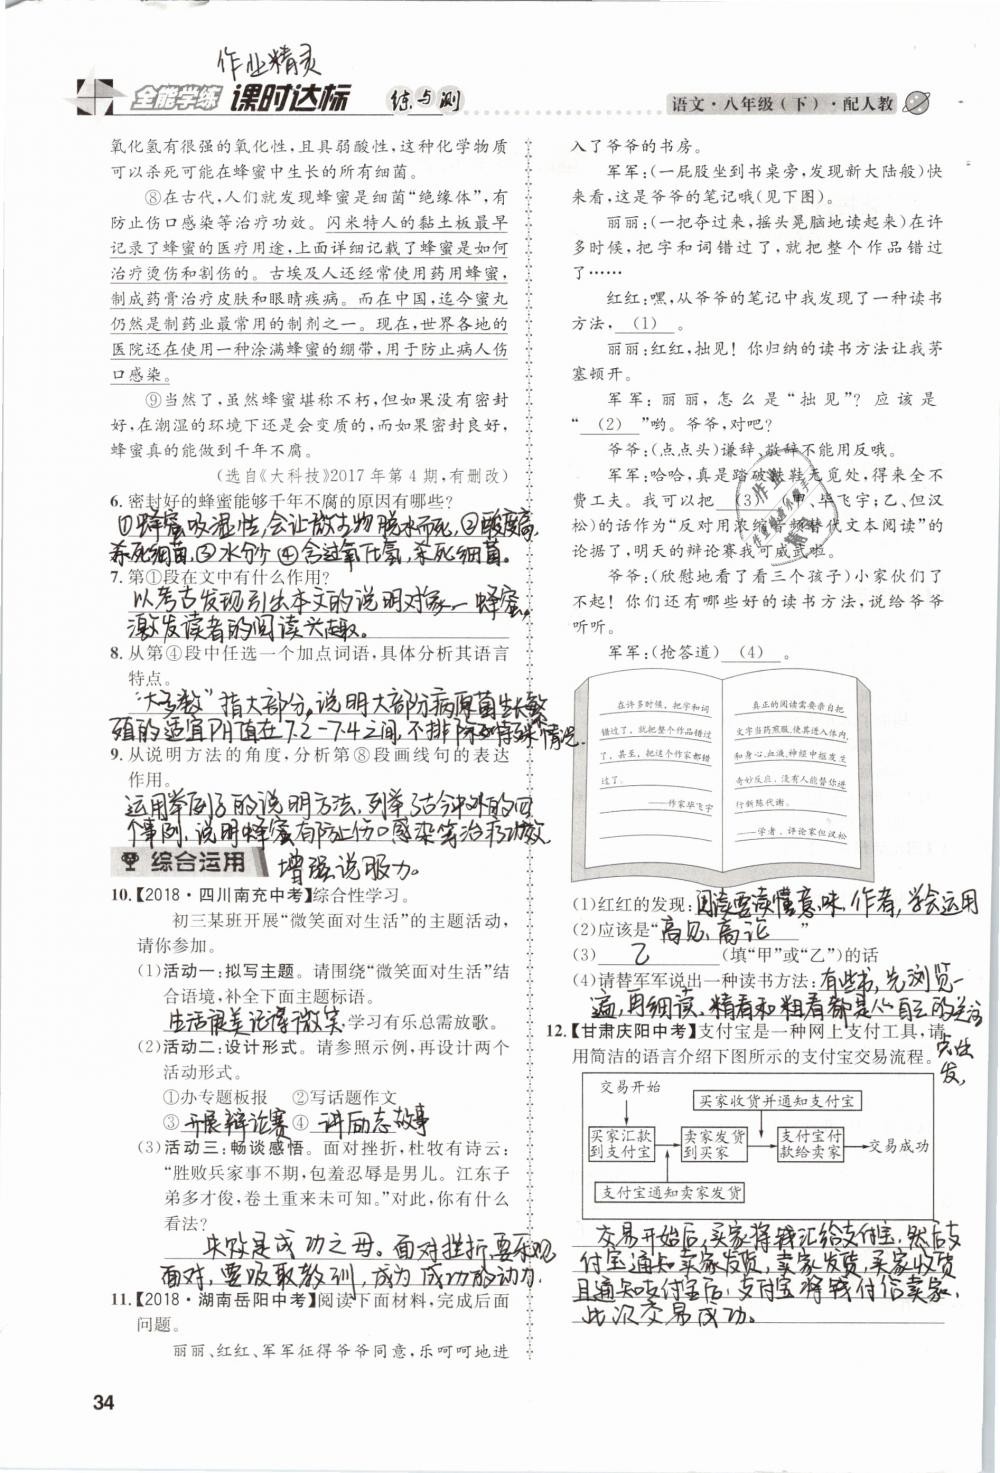 作业精灵
全能学练 课时达标 练与测
语文·八年级(下)·配人教
氧化氢有很强的氧化性,且具弱酸性,这种化学物质
可以杀死可能在蜂蜜中生长的所有细菌。
⑧在古代,人们就发现蜂蜜是细菌“绝缘体”,有
防止伤口感染等治疗功效。闪米特人的黏土板最早
记录了蜂蜜的医疗用途,上面详细记载了蜂蜜是如何
治疗烫伤和割伤的。古埃及人还经常使用药用蜂蜜,
制成药膏治疗皮肤和眼睛疾病。而在中国,迄今蜜丸
仍然是制药业最常用的制剂之一。现在,世界各地的
医院还在使用一种涂满蜂蜜的绷带,用于防止病人伤
口感染。
⑨当然了,虽然蜂蜜堪称不朽,但如果没有密封
好,在潮湿的环境下还是会变质的,而如果密封良好,
蜂蜜真的能做到千年不腐。
(选自《大科技》2017年第4期,有删改)
6. 密封好的蜂蜜能够千年不腐的原因有哪些?
①蜂蜜吸湿性,会让微生物脱水而死,②酸度高,
杀死细菌,③水分少 ④含过氧化氢,杀死细菌。
7. 第①段在文中有什么作用?
以考古发现引出本文的说明对象一蜂蜜,
激发读者的阅读兴趣。
8. 从第④段中任选一个加点词语,具体分析其语言
特点。
“大多数”指大部分,说明大部分病原菌生长繁
殖的适宜PH值在7.2-7.4之间,不排除特殊情况.
9. 从说明方法的角度,分析第⑧段画线句的表达
作用。
运用举例子的说明方法,列举了古今中外的
事例,说明蜂蜜有防止伤口感染等治疗功效
增强说服力。
综合运用
10.【2018·四川南充中考】综合性学习。
初三某班开展“微笑面对生活”的主题活动,
请你参加。
(1)活动一:拟写主题。请围绕“微笑面对生活”结
合语境,补全下面主题标语。
生活很美记得微笑,学习有乐总需放歌。
(2)活动二:设计形式。请参照示例,再设计两个
活动形式。
①办专题板报 ②写话题作文
③开展辩论赛④ 讲励志故事
(3)活动三:畅谈感悟。面对挫折,杜牧有诗云:
“胜败兵家事不期,包羞忍辱是男儿。江东子
弟多才俊,卷土重来未可知。”对此,你有什么
看法?
失败是成功之母。面对挫折,要乐观
面对,要吸取教训,成为成功的动力.
11.【2018·湖南岳阳中考】阅读下面材料,完成后面
问题。
丽丽、红红、军军征得爷爷同意,乐呵呵地进
34
入了爷爷的书房。
军军:(一屁股坐到书桌旁,发现新大陆般)快
来看,这是爷爷的笔记哦(见下图)。
丽丽:(一把夺过来,摇头晃脑地读起来)在许
多时候,把字和词错过了,就把整个作品错过
了……
红红:嘿,从爷爷的笔记中我发现了一种读书
方法,(1)。
丽丽:红红,拙见!你归纳的读书方法让我茅
塞顿开。
军军:丽丽,怎么是“拙见”?应该是
“(2)”哟。爷爷,对吧?
爷爷:(点点头)谦辞、敬辞不能用反哦。
军军:哈哈,真是踏破铁鞋无觅处,得来全不
费工夫。我可以把(3)(甲、毕飞宇;乙、但汉
松)的话作为“反对用浓缩音频替代文本阅读”的
论据了,明天的辩论赛我可威武啦。
爷爷:(欣慰地看了看三个孩子)小家伙们了
不起!你们还有哪些好的读书方法,说给爷爷
听听。
军军:(抢答道)(4)。
在许多时候,把字和词
错过了,就把整个作品错过
了,甚至,把这个作家都错
过了。
——作家毕飞宇
真正的阅读需要亲自把
文字当药煎服,使其进入体内,
和身心、血液、神经中枢发生
奇妙反应,没有人能替你进
行新陈代谢。
——学者、评论家但汉松
(1)红红的发现:阅读要读懂意味,作者,学会运用
(2)应该是“高见、高论”
(3) 乙 (填“甲”或“乙”)的话
(4)请替军军说出一种读书方法:有些书,先浏览一
遍,再细读,精看和粗看都是
12.【甘肃庆阳中考】支付宝是一种网上支付工具,请
用简洁的语言介绍下图所示的支付宝交易流程。
交易开始
买家收货并通知支付宝
买家汇款到支付宝
卖家发货到买家
支付宝付款给卖家
交易成功
支付宝通知卖家发货
交易开始后,买家将钱汇给支付宝,然后支
付宝通知卖家发货,卖家发货,买家收货
且通知支付宝后,支付宝将钱付给卖家,
此次交易成功。